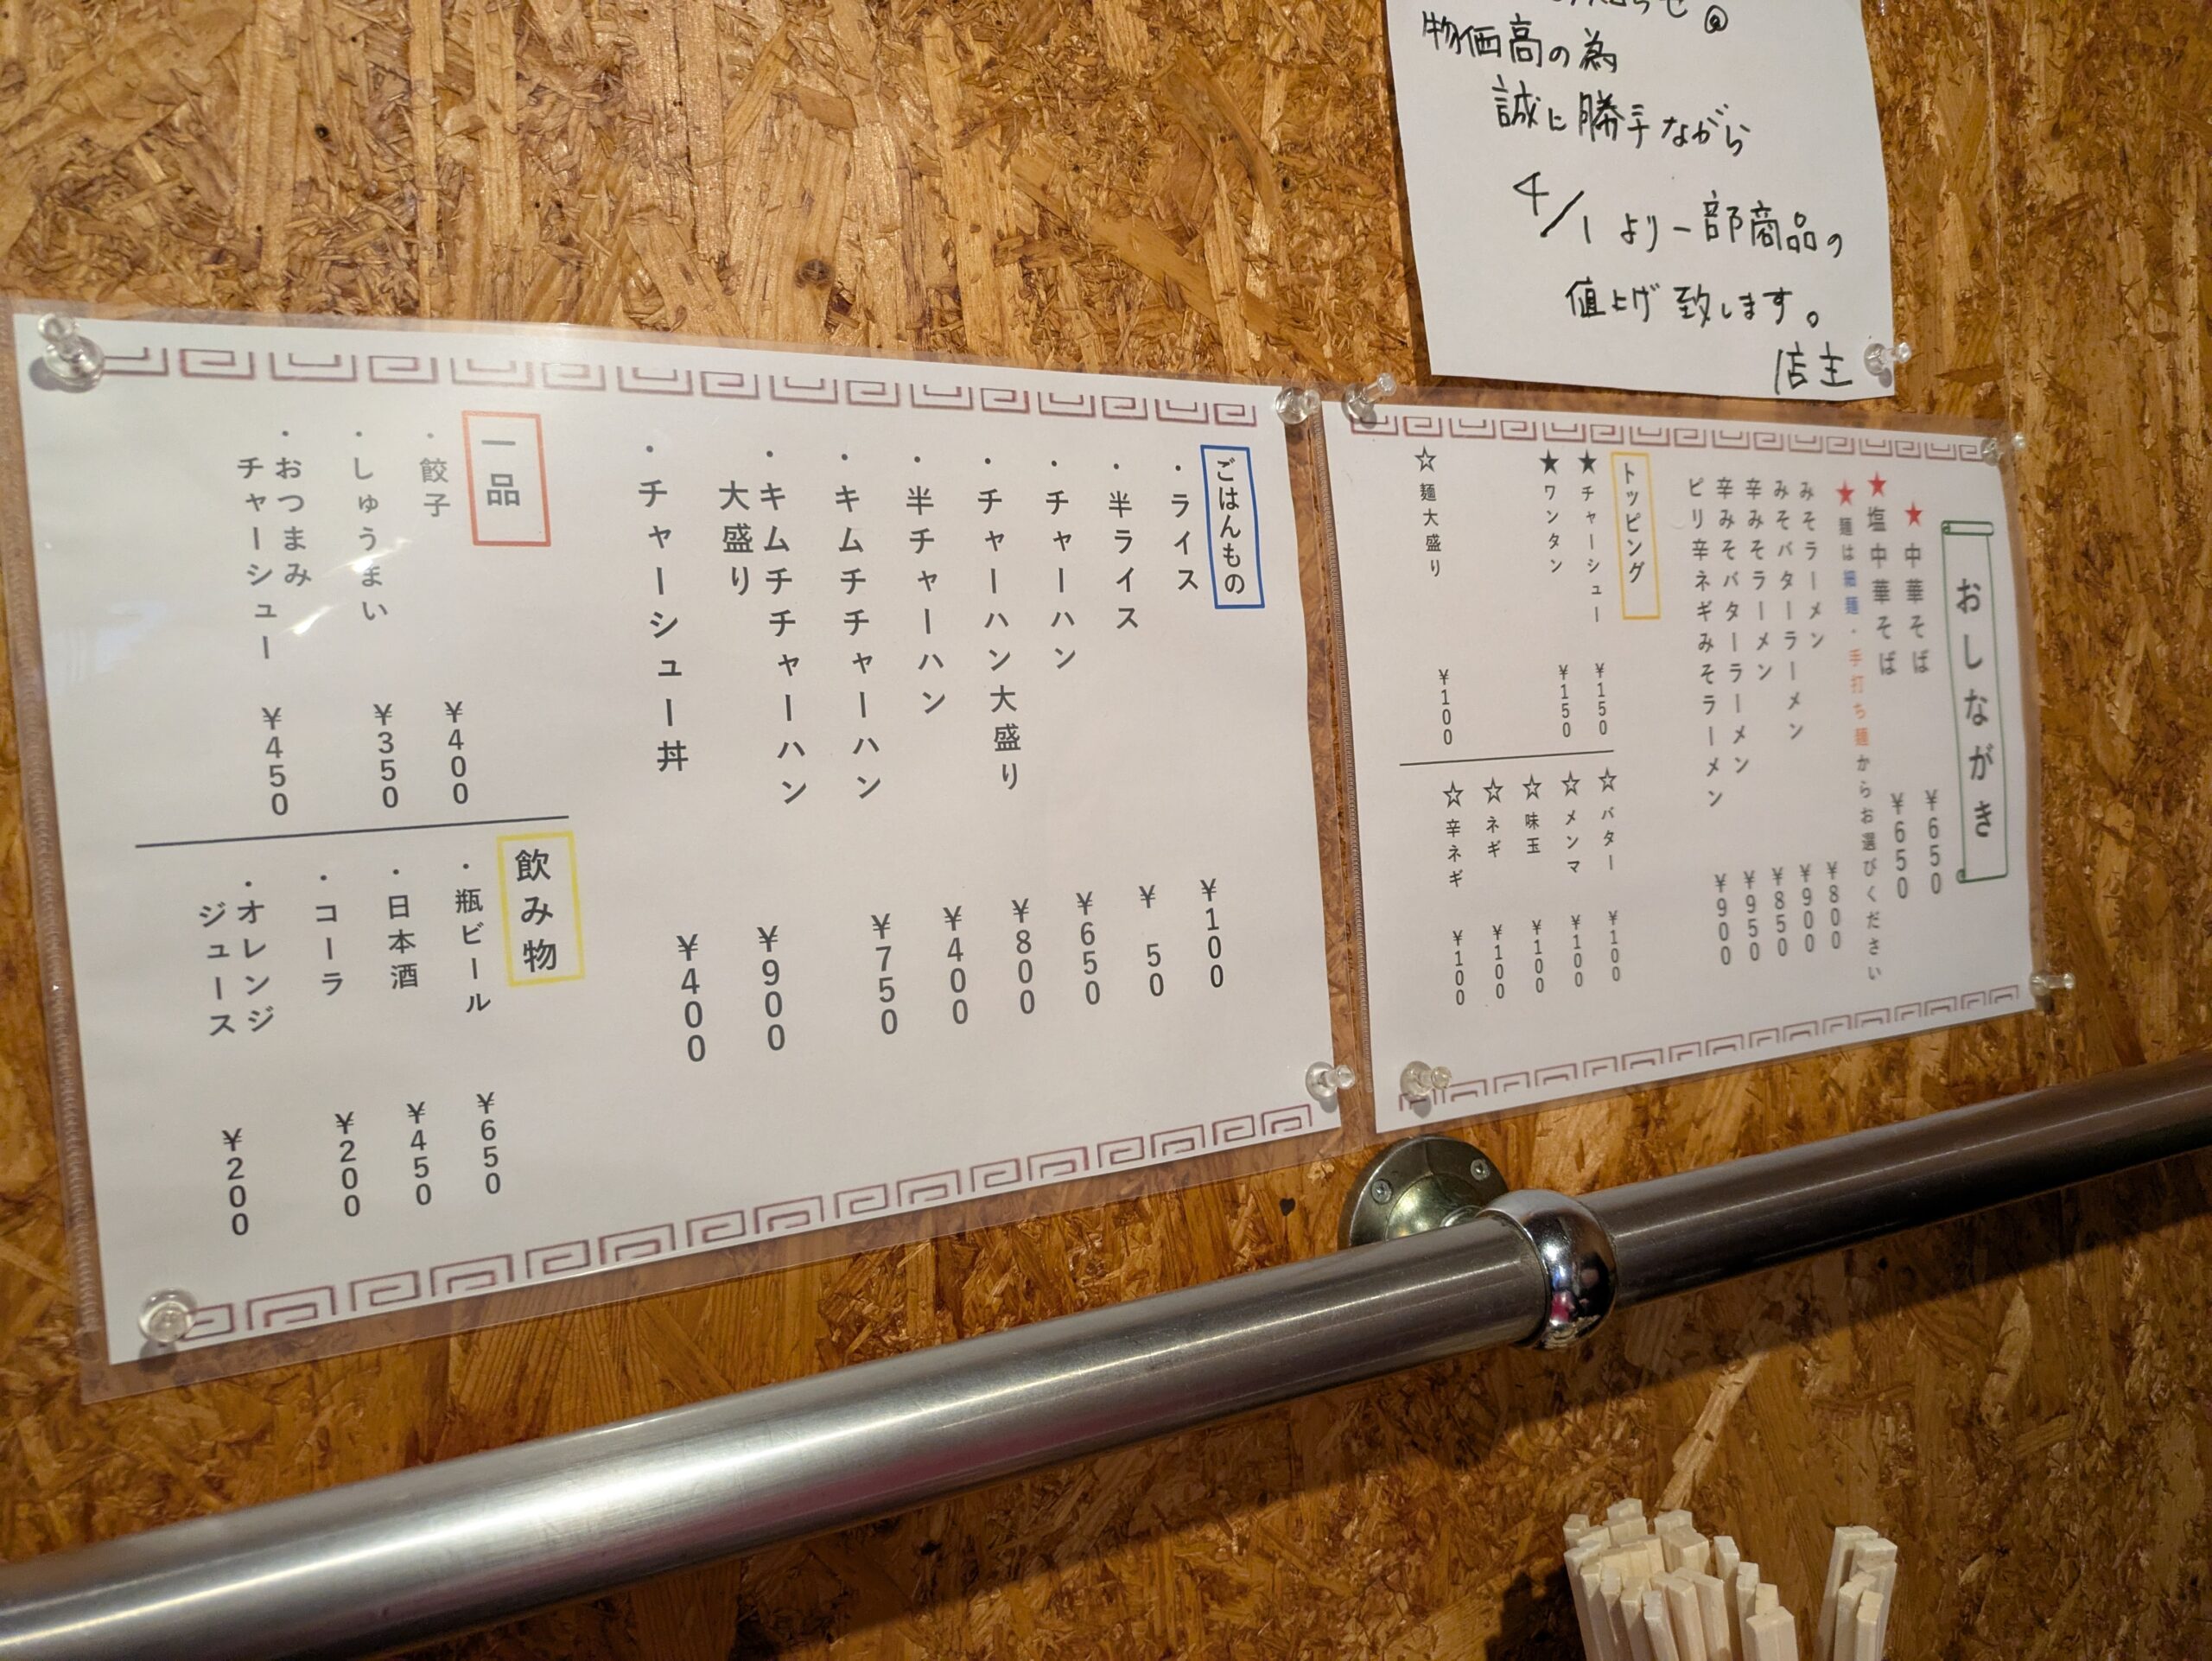 物価高の為
誠に勝手ながら
4/1より一部商品の
値上げ致します。
店主
おしながき
★中華そば ¥650
★塩中華そば ¥650
★麺は細麺・手打ち麺からお選びください
みそラーメン ¥800
みそバターラーメン ¥900
辛みそラーメン ¥850
辛みそバターラーメン ¥950
ピリ辛ネギみそラーメン ¥900
トッピング
★チャーシュー ¥150
★ワンタン ¥150
☆麺大盛り ¥100
☆バター ¥100
☆メンマ ¥100
☆味玉 ¥100
☆ネギ ¥100
☆辛ネギ ¥100
ごはんもの
・ライス ¥100
・半ライス ¥ 50
・チャーハン ¥650
・チャーハン大盛り ¥800
・半チャーハン ¥400
・キムチチャーハン ¥750
・キムチチャーハン
大盛り ¥900
・チャーシュー丼 ¥400
一品
・餃子 ¥400
・しゅうまい ¥350
・おつまみ
チャーシュー ¥450
飲み物
・瓶ビール ¥650
・日本酒 ¥450
・コーラ ¥200
・オレンジ
ジュース ¥200